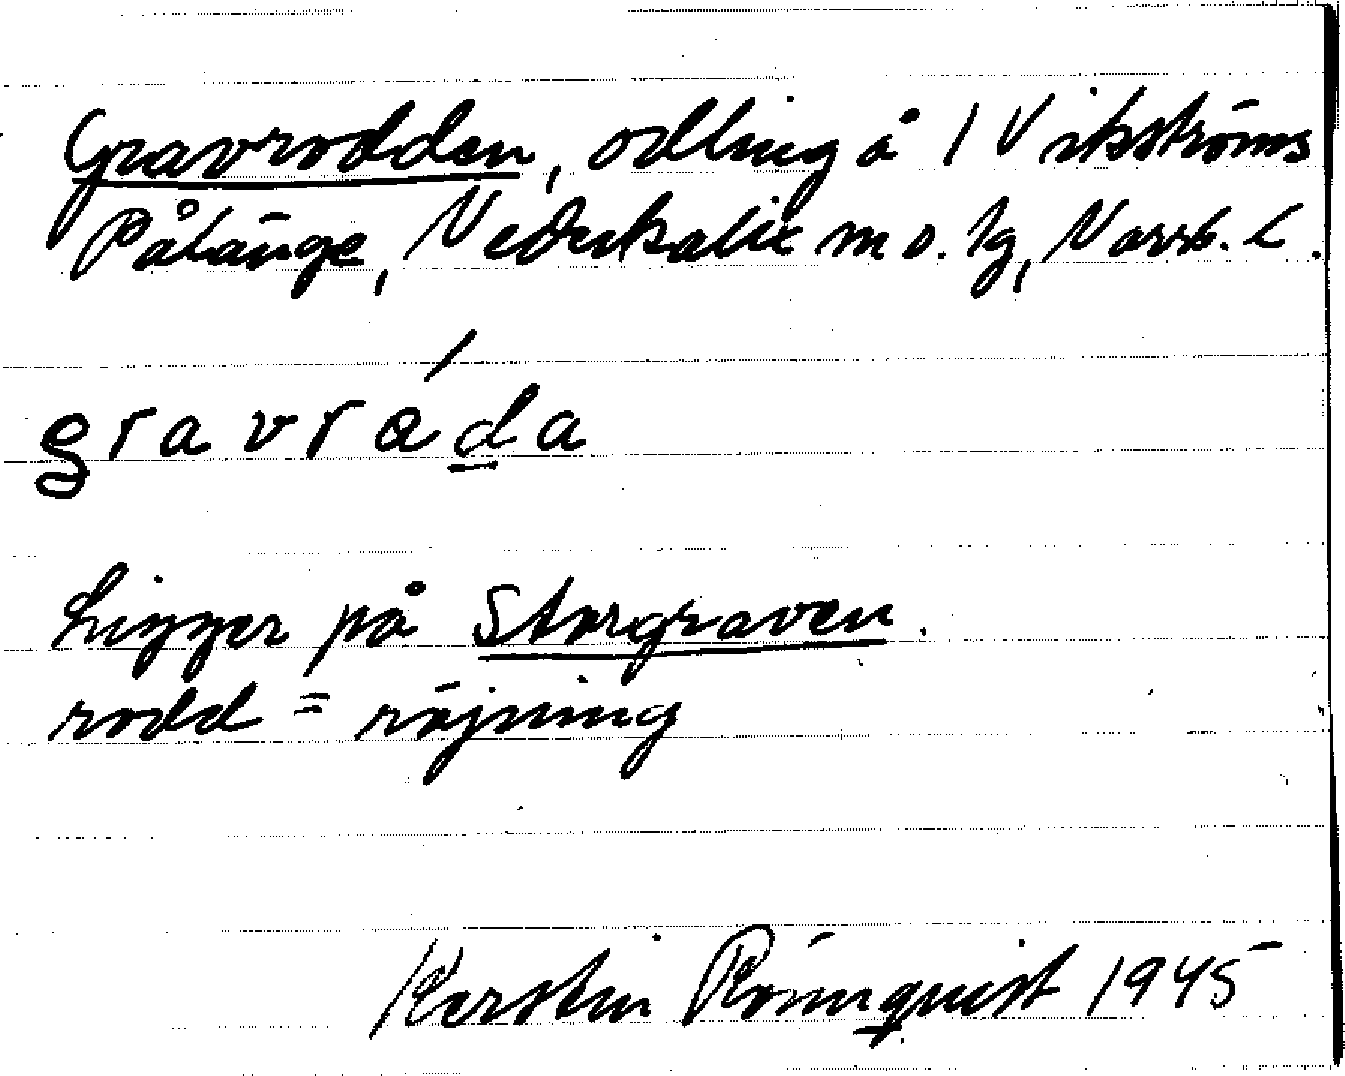 Gravrodden, odling å 1 Vikströms
Pålänge, Nederkalix sn o. tg, Norrb. l.
gravråda
Ligger på Storgraven.
rodd = röjning
Kerstin Rönnquist 1945